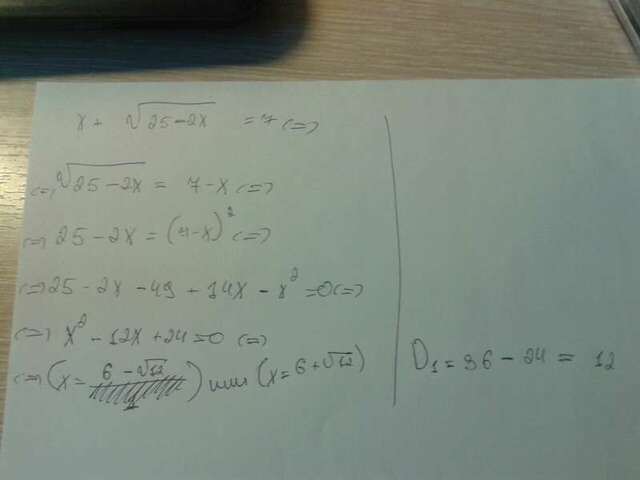 x + √25-2x = 7 <=>
<=> √25-2x = 7-x <=>
<=> 25-2x = (7-x)² <=>
<=> 25-2x-49+14x-x²=0 <=>
<=> x²-12x+24=0 <=>
<=> (x = 6-√12) или (x = 6+√12)
D₁ = 36-24 = 12